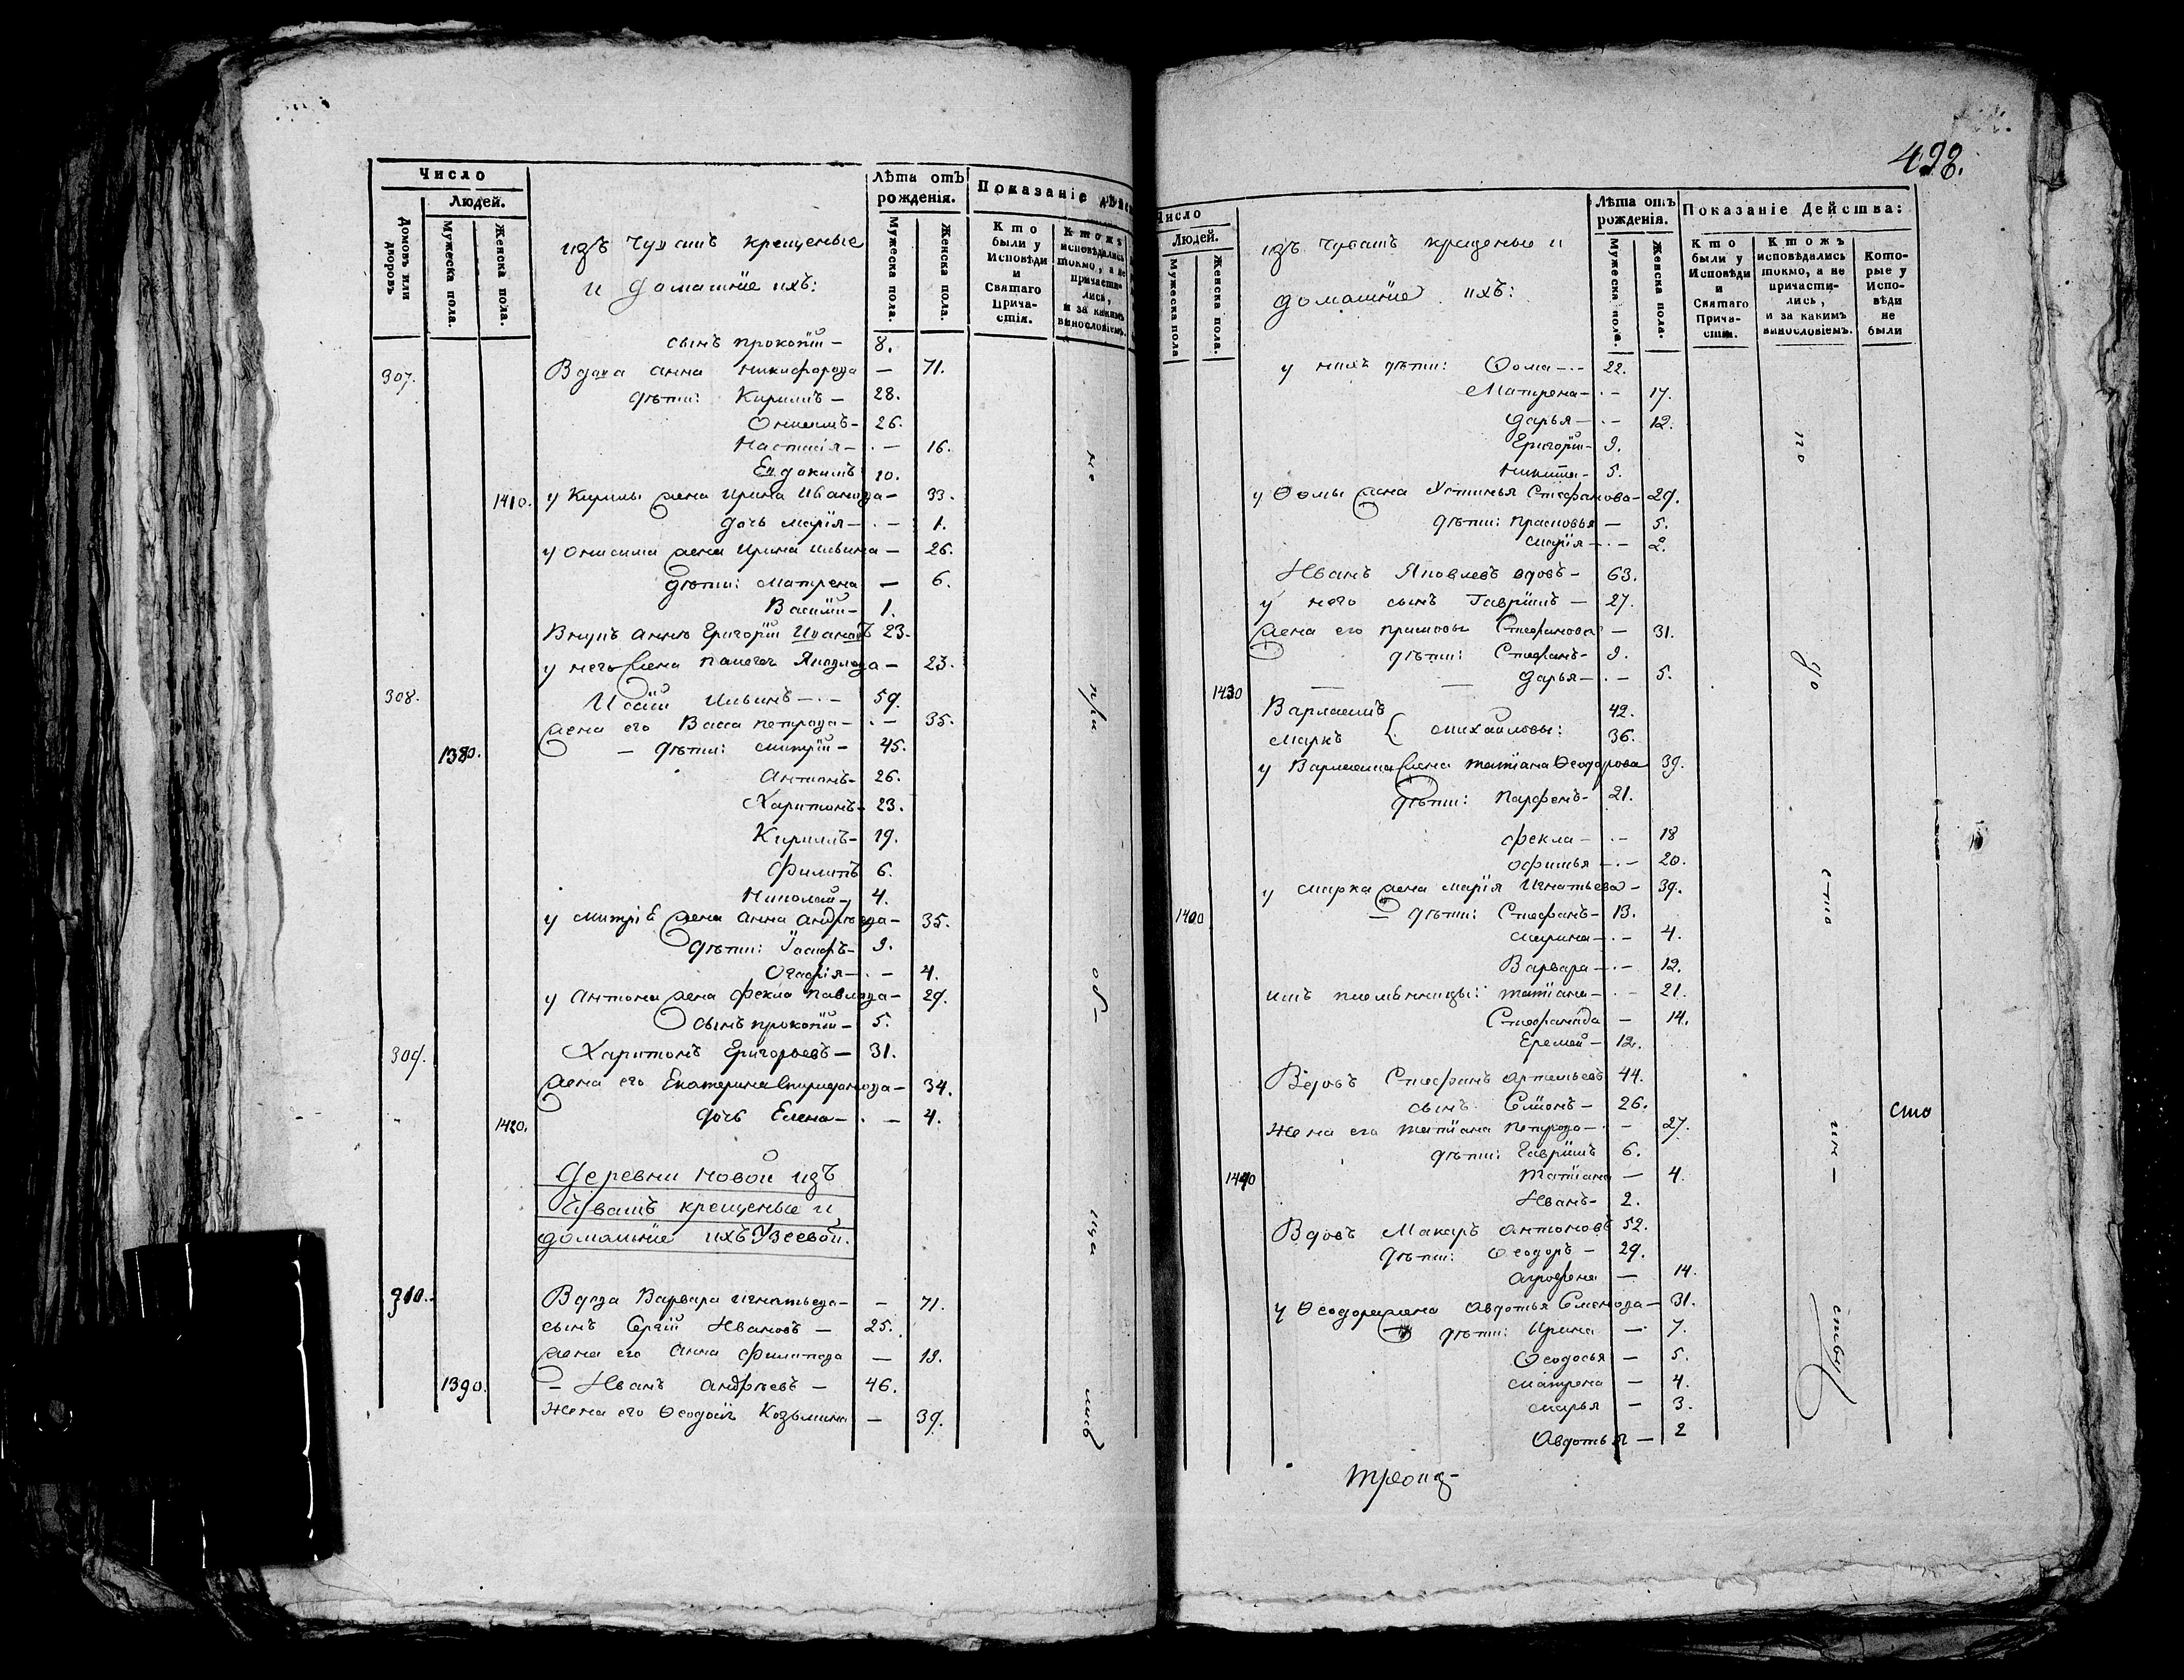 Число
Людей.
Домовъ или дворовъ
Мужеска пола.
Женска пола.
изъ Чувашъ крещеные
и домашніе ихъ:
Лѣта отъ рожденія.
Мужеска пола.
Женска пола.
Показаніе дѣйс
Кто были у Исповѣди и Святаго Причастія.
Ктожъ исповѣдались токмо, а не причастились, и за какимъ винословіемъ.
сынъ прокопій — 8.
307. Вдова анна никифорова — 71.
дѣти: Кирилъ — 28.
Онисимъ — 26.
Настасія — 16.
Евдокимъ 10.
1410. у Кирилы жена Ирина Иванова — 33.
дочь марія — 1.
у онисима жена Ирина ильина — 26.
дѣти: матрена — 6.
Василій — 1.
Внукъ анны Григорій Ивановъ 23.
у него жена Яковлева — 23.
308. Ильинъ — 59.
жена его Васса петрова — 35.
1380. — дѣти: митрій — 45.
Антонъ — 26.
Харитонъ — 23.
Кирилъ — 19.
Филипъ 6.
Николай 4.
у митріѣ жена анна андрѣева — 35.
дѣти: Іосифъ — 9.
Огафія — 4.
у антона жена фекла павлова — 29.
сынъ прокопій — 5.
309. Харитонъ Григорьевъ — 31.
жена его Екатерина Спиридонова — 34.
1420. дочь Елена — 4.
Деревни новой изъ
Чувашъ крещеные и
домашніе ихъ Узеевой.
310. Вдова Варвара игнатьева — 71.
сынъ Сергій Ивановъ — 25.
жена его анна филипова — 19.
1390. — Иванъ андрѣевъ — 46.
жена его Ѳеодосія Козьмина — 39.
не
при
об-
ща
лись
498.
Число
Людей.
Мужеска пола
Женска пола.
изъ Чувашъ крещеные и
домашніе ихъ:
Лѣта отъ рожденія.
Мужеска пола.
Женска пола.
Показаніе Действа:
Кто были у Исповѣди и Святаго Причастія.
Ктожъ исповѣдались токмо, а не причастились, и за какимъ винословіемъ.
Которые у Исповѣди не были
у нихъ дѣти: Ѳома — 22.
Матрена — 17.
дарья — 12.
Григорій — 9.
никита — 5.
у Ѳомы жена Устинья Стефанова — 29.
дѣти: прасковья — 5.
марія — 2.
Иванъ Яковлевъ вдовъ — 63.
у него сынъ Гаврилъ — 27.
жена его Стефанова — 31.
дѣти: Стефанъ — 9.
1430 дарья — 5.
Варламъ 42.
маркъ { михайловы: 36.
у Варлама жена татіана Ѳеодорова 39.
дѣти: парфенъ — 21.
фекла — 18
офимья — 20.
у марка жена марія Игнатьева — 39.
1400 — дѣти: Стефанъ — 13.
марина — 4.
Варвара — 12.
ихъ племянницы: татіана — 21.
Стефанида — 14.
Еремей — 12.
Вдовъ Стефанъ артемьевъ 44.
сынъ Семіонъ — 26.
жена его татіана петрова — 27.
дѣти: Гаврилъ 6.
1440 татіана — 4.
Иванъ — 2.
Вдовъ Макаръ антоновъ 52.
дѣти: Ѳеодоръ — 29.
агрофена — 14.
у Ѳеодора жена авдотья Семенова — 31.
дѣти: Ирина — 7.
Ѳеодосья — 5.
матрена — 4.
марья — 3.
авдотья — 2
по
до
стно
ин-
ству
сто